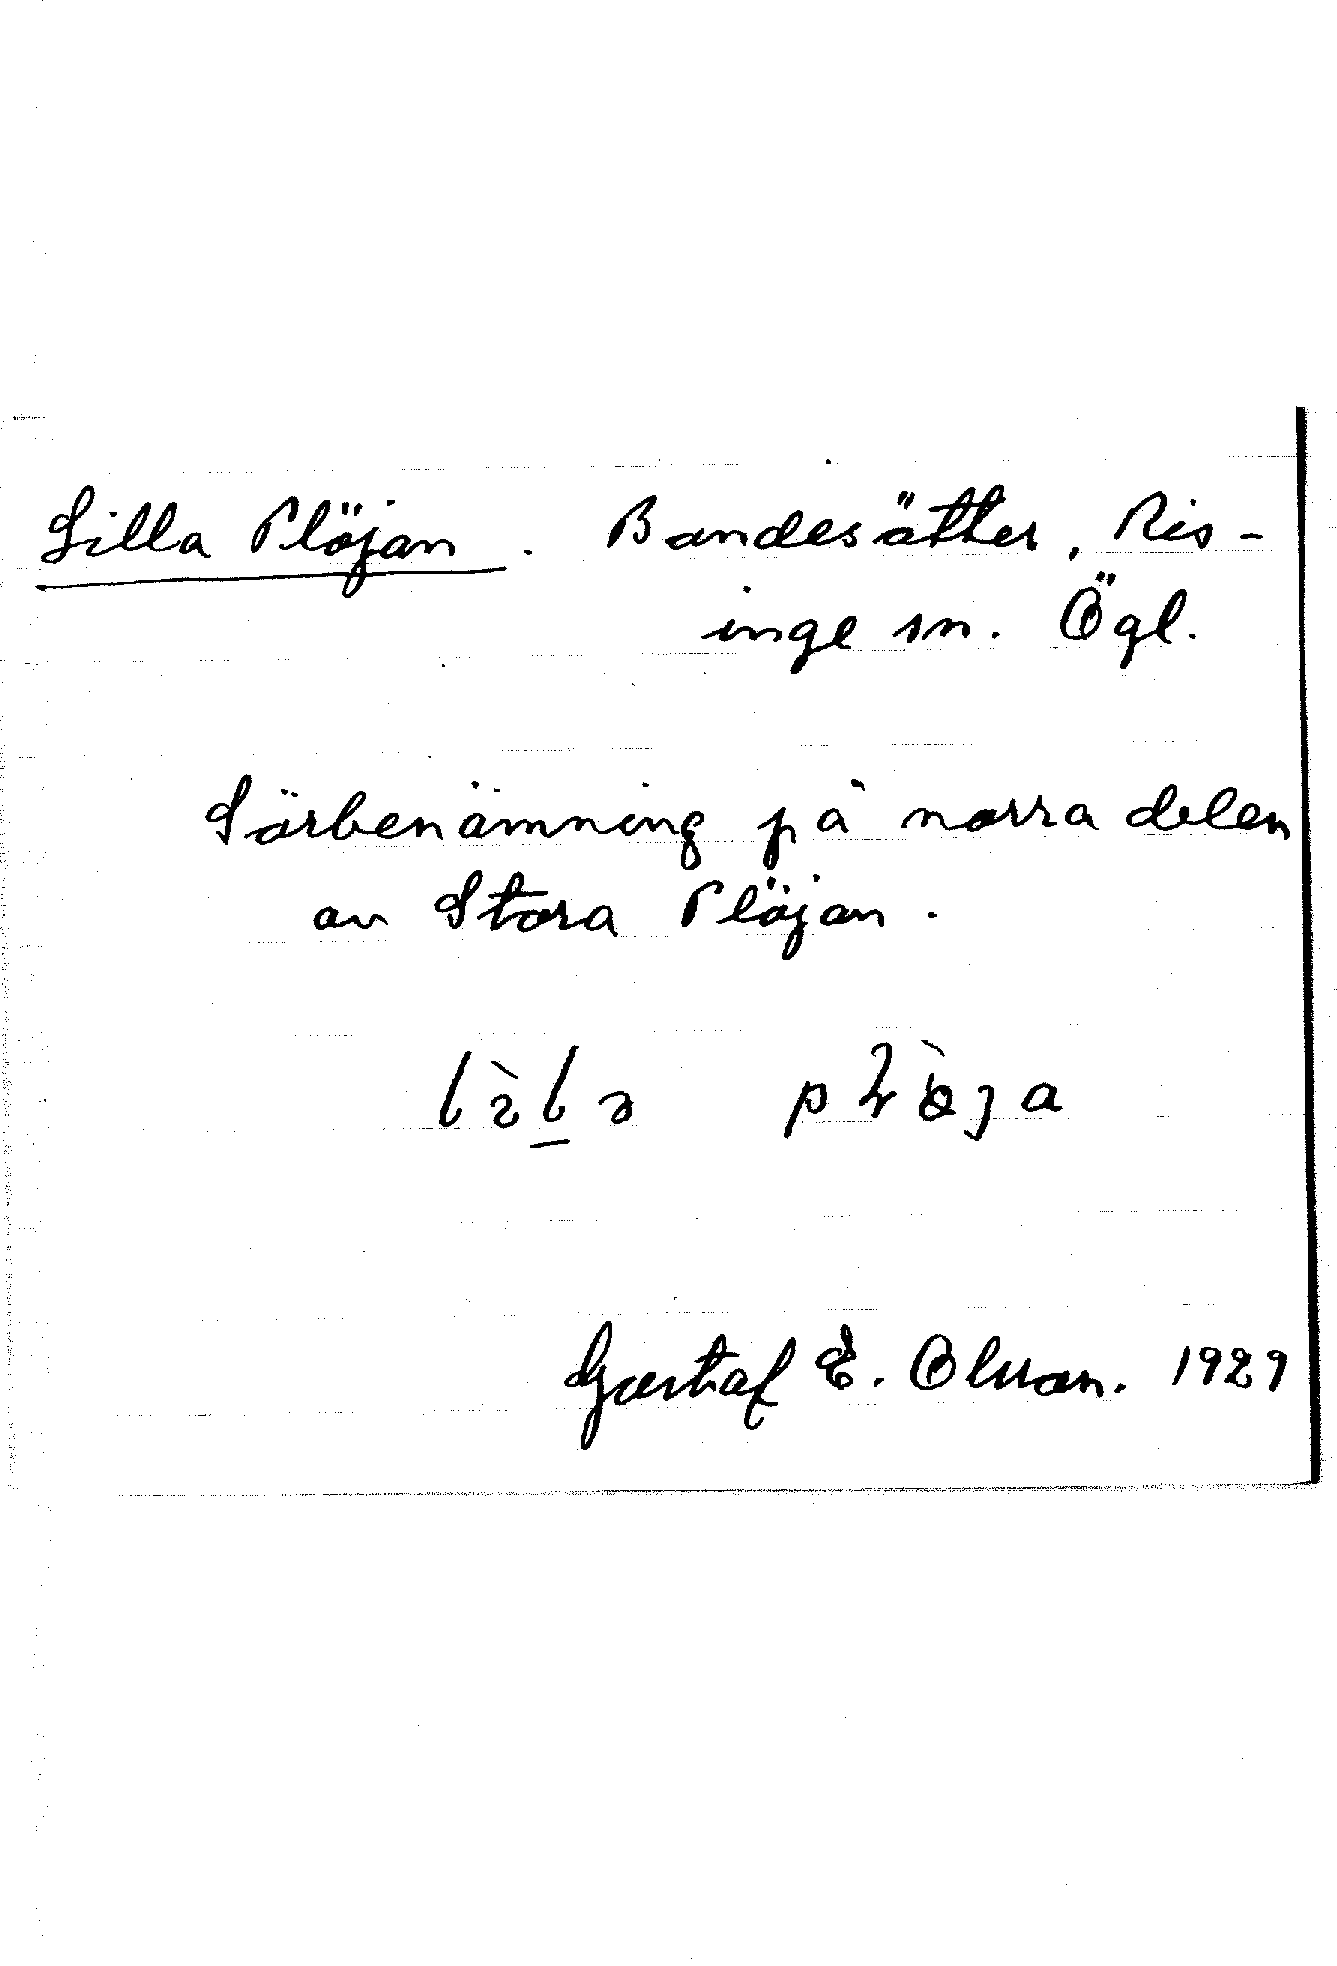 Lilla Plöjan. Bandesätter, Ris-
inge sn. Ögl.
Särbenämning på norra delen
av Stora Plöjan.
Gustaf E. Olsson. 1929